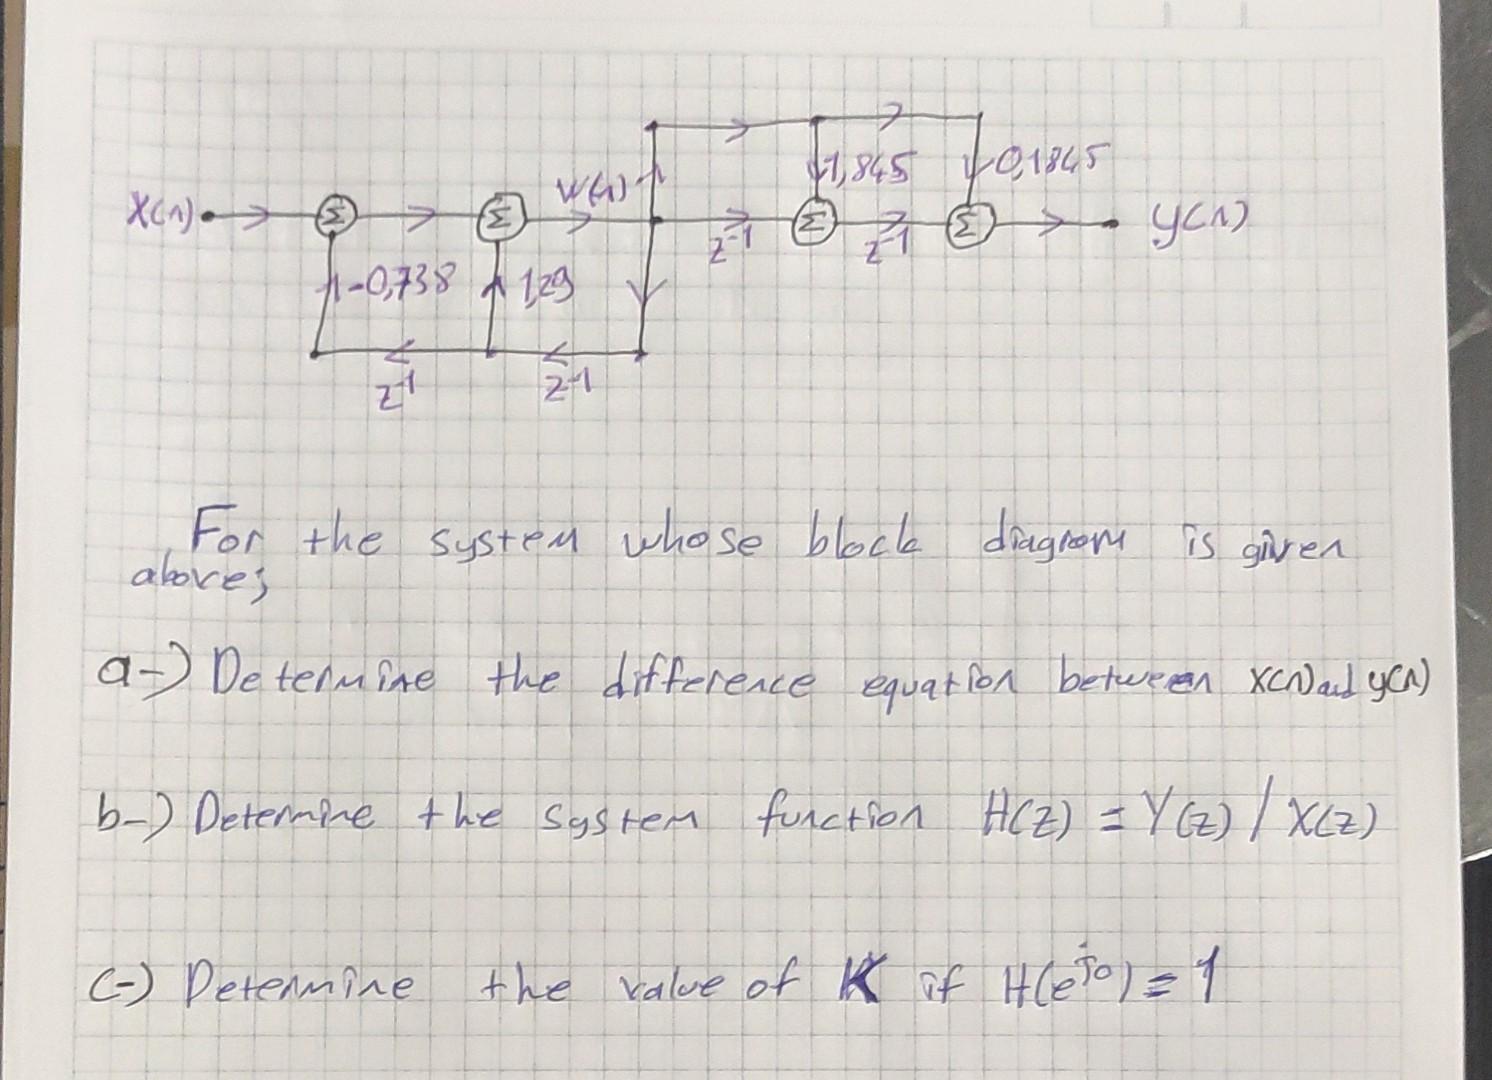 1,845 0,1845
W(n)
X(n) Σ Σ Σ Σ y(n)
z-1 z-1
-0,738 1,29
z-1 z-1
For the system whose block diagram is given
above;
a-) Determine the difference equation between x(n) and y(n)
b-) Determine the system function H(z) = Y(z) / X(z)
c-) Determine the value of K if H(e^j0) = 1